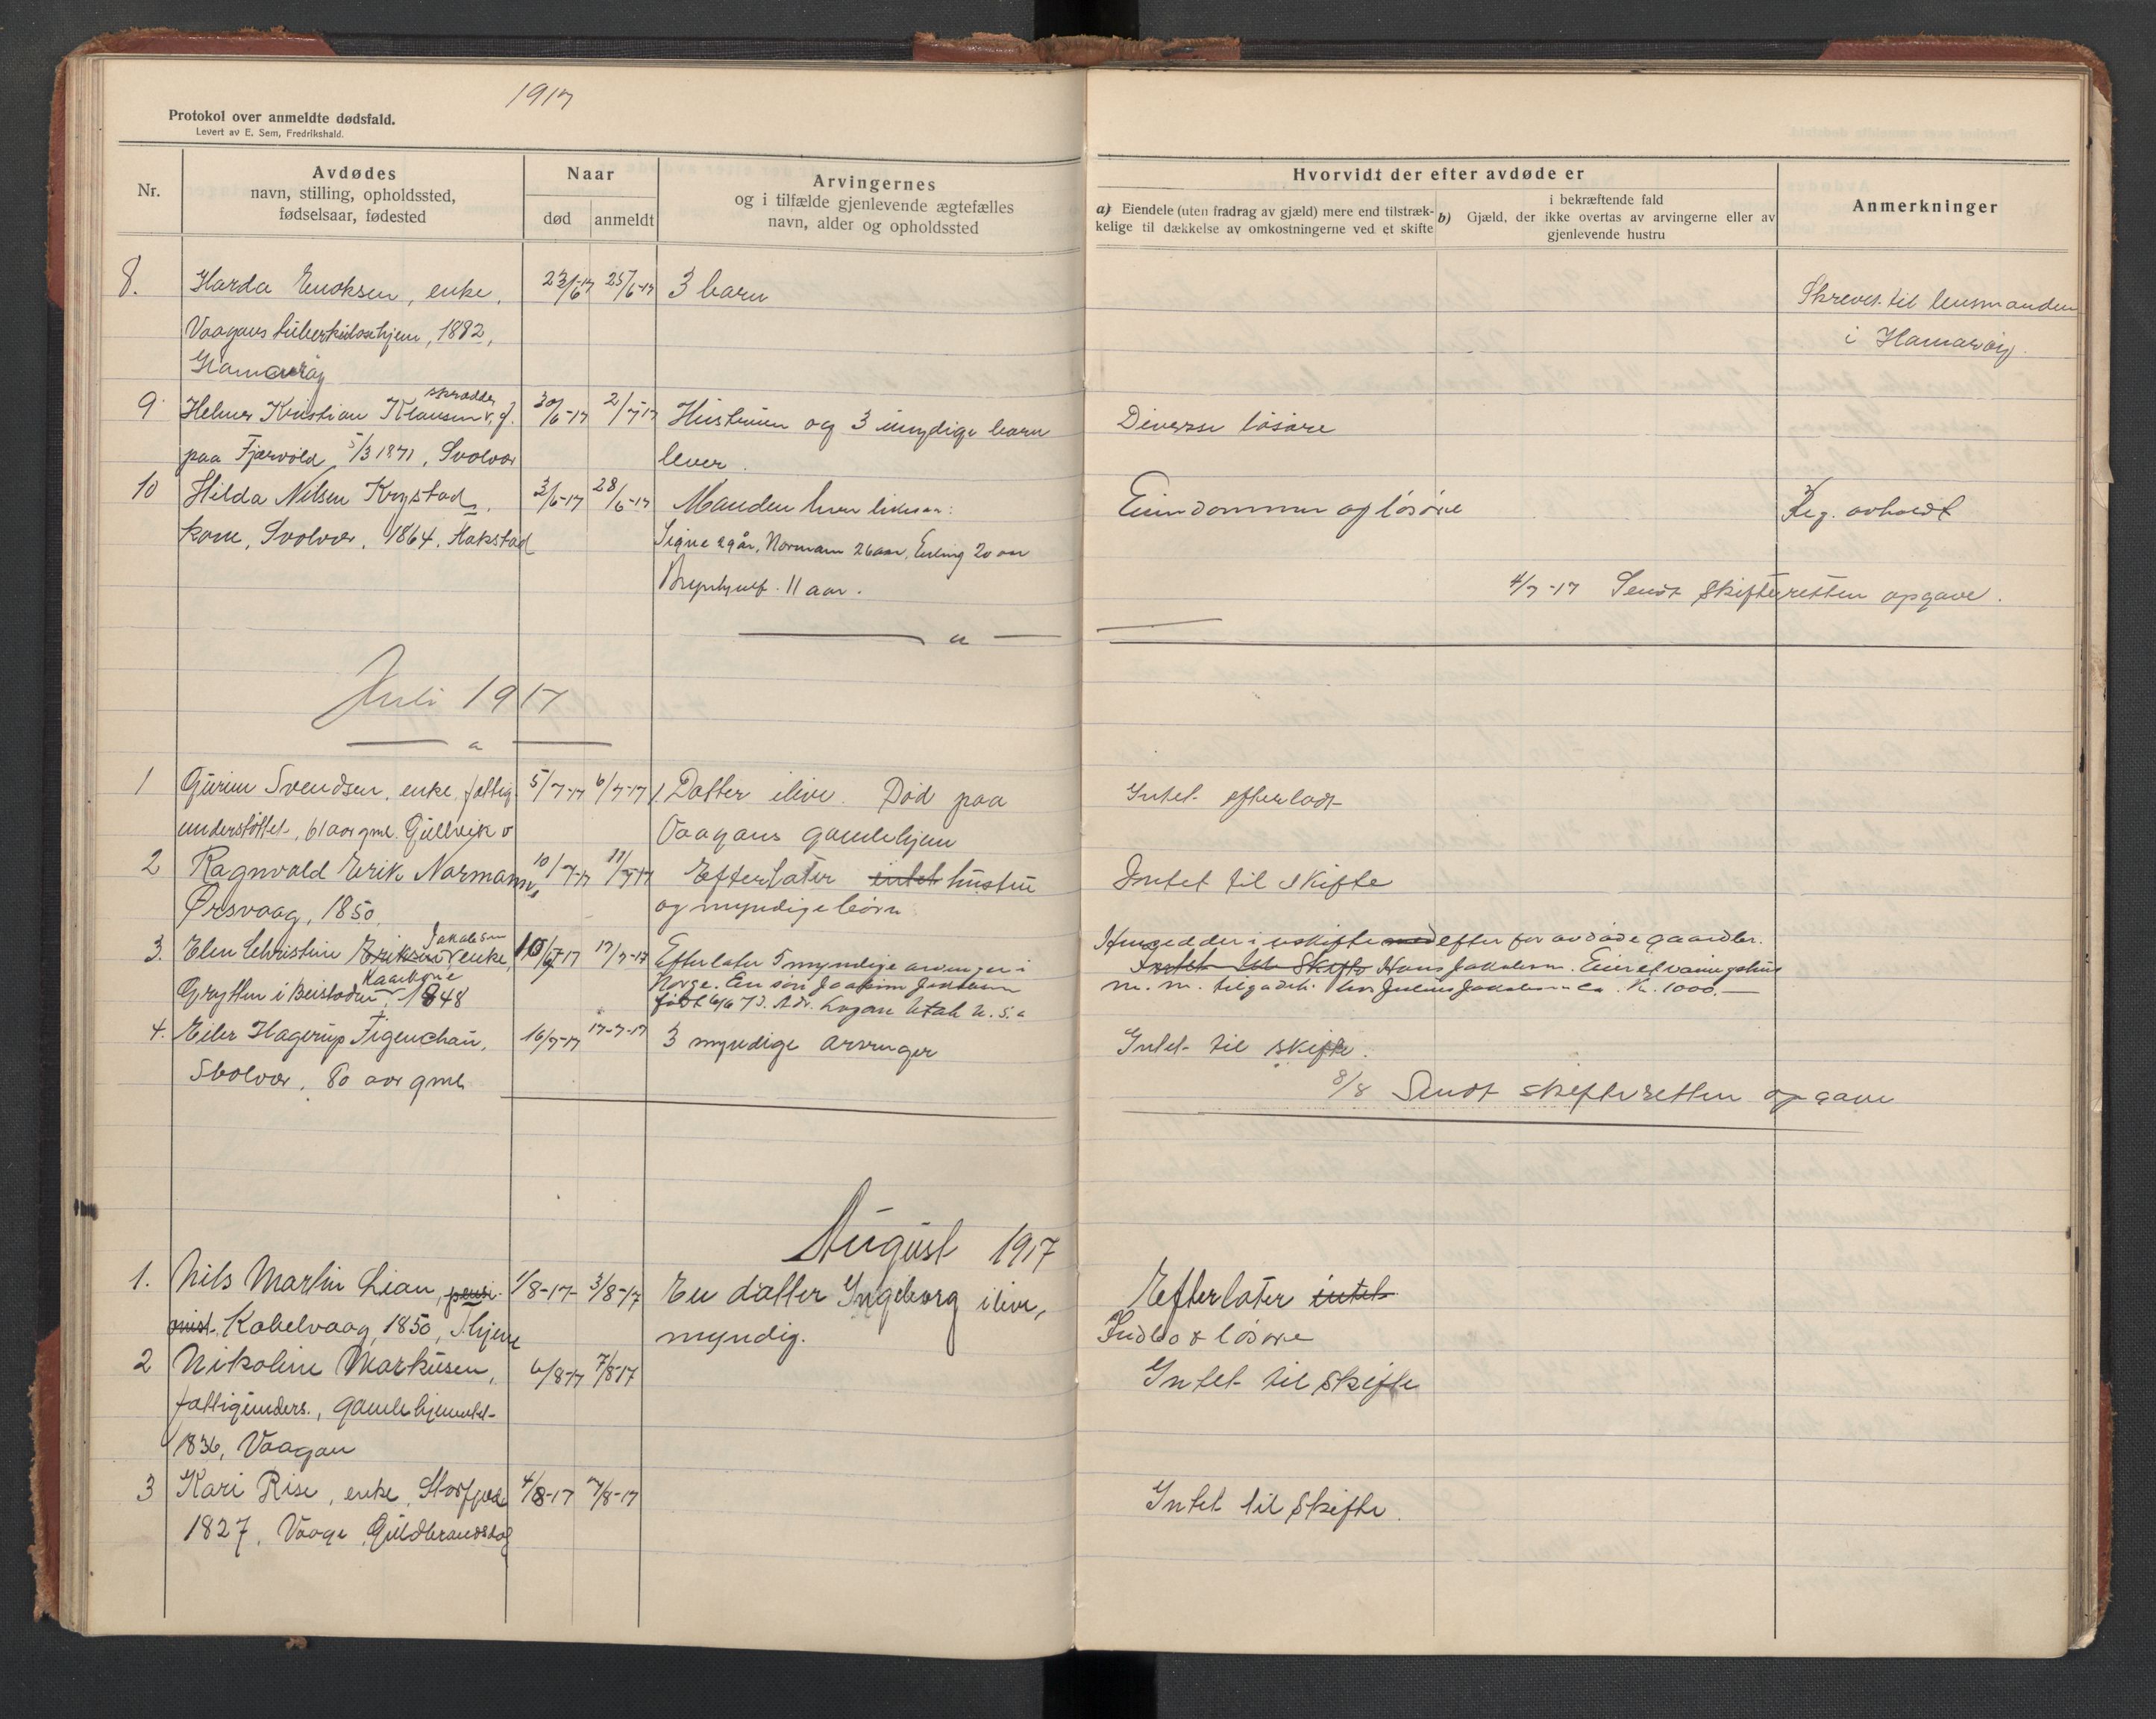 1917
Protokol over anmeldte dødsfald.
Levert av E. Sem, Fredrikshald.
Nr.
Avdødes
navn, stilling, opholdssted,
fødselsaar, fødested
Naar
død
anmeldt
Arvingernes
og i tilfælde gjenlevende ægtefælles
navn, alder og opholdssted
Hvorvidt der efter avdøde er
a) Eiendele (uten fradrag av gjæld) mere end tilstræk-
kelige til dækkelse av omkostningerne ved et skifte
i bekræftende fald
b) Gjæld, der ikke overtas av arvingerne eller av
gjenlevende hustru
Anmerkninger
8. Harda Enoksen, enke, 23/6-17 25/6-17 3 barn
Skrevet til lensmanden
Vaagans tuberkulosehjem, 1882,
i Hamarøy.
Hamarøy
skrædder
9 Helmer Kristian Klausen v. g. 30/6-17 2/7-17 Hustruen og 3 umydige barn Diverse løsøre
paa Fjærvold 5/3 1871, Svolvær lever.
10 Hilda Nilsen Kogstad, 3/6-17 28/6-17 Manden hver Eiendommer og løsøre Reg. avholdt
kone, Svolvær, 1864, Hakstad Signe 29 år, Normann 26 aar, Erling 20 aar
Brynhjulf 11 aar.
4/7-17 Sendt skifteretten opgave.
Juli 1917
1 Gurine Svendsen, enke, fattig 5/7-17 6/7-17 1 Datter ilive. Død paa Intet efterladt
understøttet, 61 aar gml. Gullvik v Vaagans gamlehjem
2 Ragnvald Erik Normann, 10/7-17 11/7-17 Efterlater intet hustru Intet til skifte
Ørsvaag, 1850. og myndige børn
Jakobsen
3. Elen Christine Eriksen enke, 10/7-17 17/7-17 Efterlater 5 myndige arvinger i Hensedder i uskifte med efter før avdøde gaardbr.
Kaarbøne
Grytten i Beistaden, 1848 Norge. En søn Joakim Jakobsen Intet til Skifte Hans Jakobsen. Eier et vaaningshus
født 6/6 73. Adr. Logan Utah U.S.a m. m. tilgodeh. hos Julius Jakobsen ca. Kr. 1000.—
4. Eiler Hagerup Figenchau, 16/7-17 17-7-17 3 myndige arvinger Intet til skifte.
Svolvær, 80 aar gml.
8/8 Sendt skifteretten opgave
August 1917
1. Nils Martin Lian, pensi- 1/8-17 3/8-17 En datter Ingeborg ilive, Efterlater intet
onist. Kabelvaag, 1850, Thjeme myndig. Indbo & løsøre
2 Nikoline Markusen, 6/8-17 7/8-17 Intet til skifte
fattigunders., gamlehjemmet
1836, Vaagan
3 Kari Rise, enke, Storfjord 4/8-17 7/8-17 Intet til skifte.
1827, Vaage Guldbrandsdal